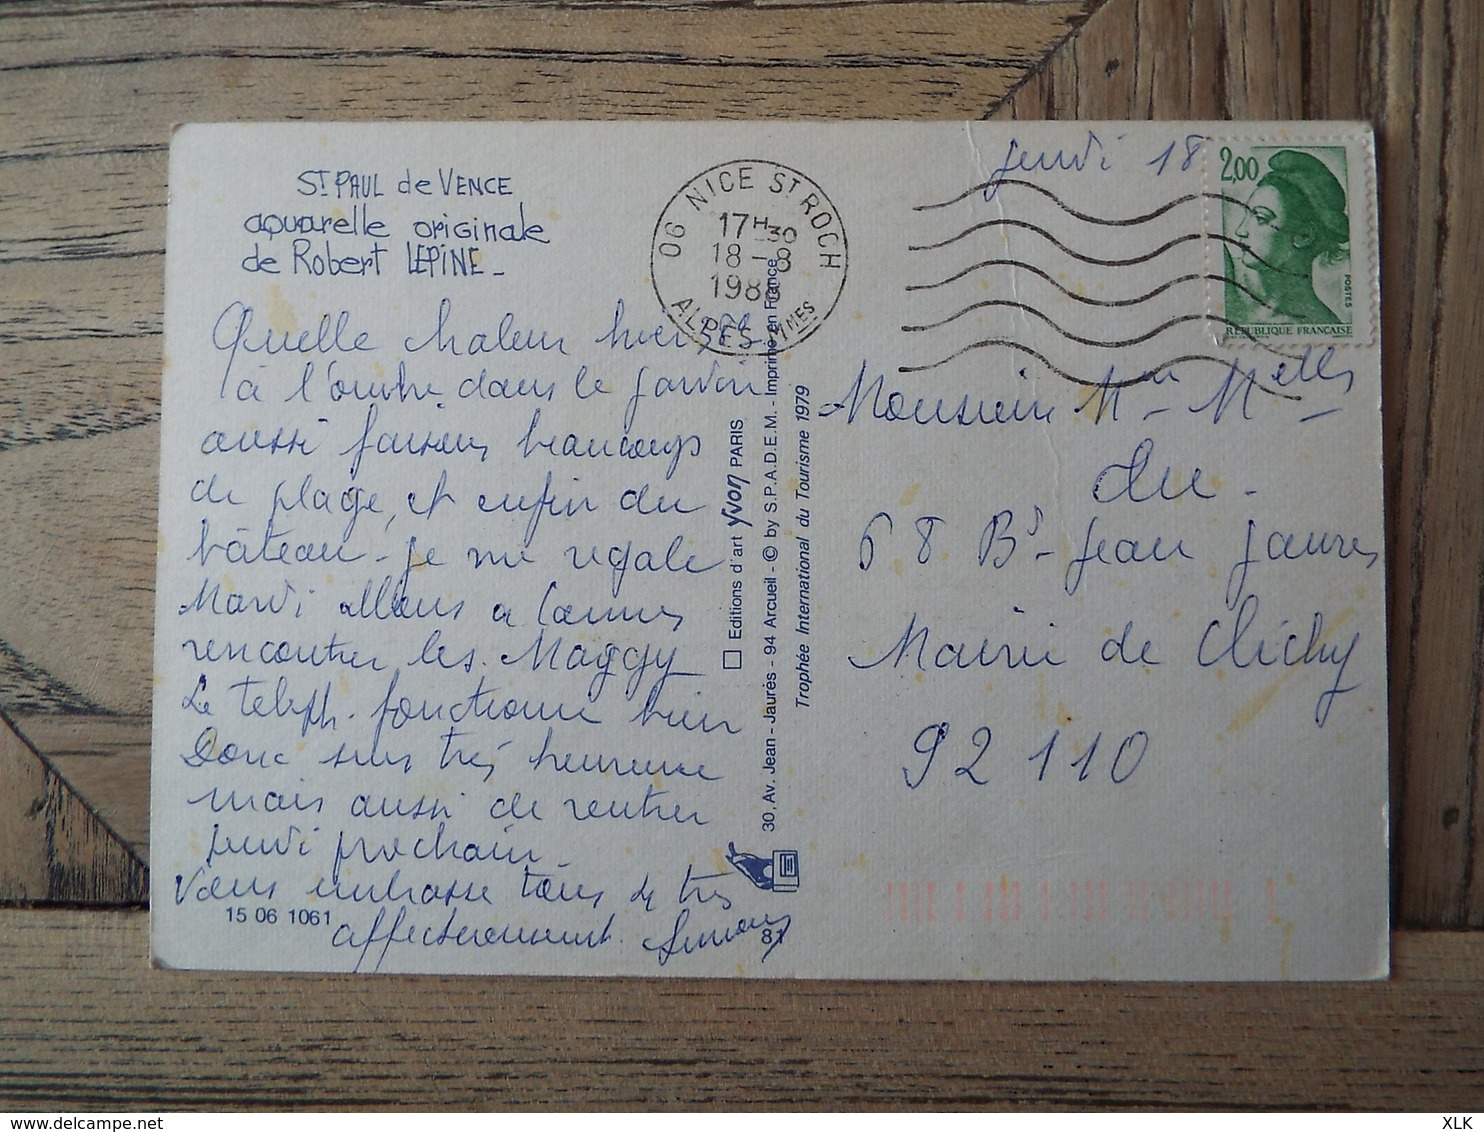 St PAUL de VENCE
aquarelle originale
de Robert LEPINE_
jeudi 18
06 NICE ST ROCH
17H30
18-8
1988
ALPES-MMES
2,00
POSTES
REPUBLIQUE FRANCAISE
Quelle chaleur hier
à l'ombre dans le jardin
aussi faisons beaucoup
de plage, et enfin du
bâteau - je me régale
Mardi allons a Cannes
rencontrer les Maggy
Le teleph. fonctionne bien
Donc suis très heureuse
mais aussi de rentrer
jeudi prochain_
Vous embrasse tous 4 très
affectueusement. Simone
15 06 1061
87
Editions d'art Yvon PARIS
30, Av. Jean - Jaurès - 94 Arcueil - © by S.P.A.D.E.M. - Imprimé en France
Trophée International du Tourisme 1979
Monsieur Mme Melles
du
68 Bd Jean Jaures
Mairie de Clichy
92 110
XLK